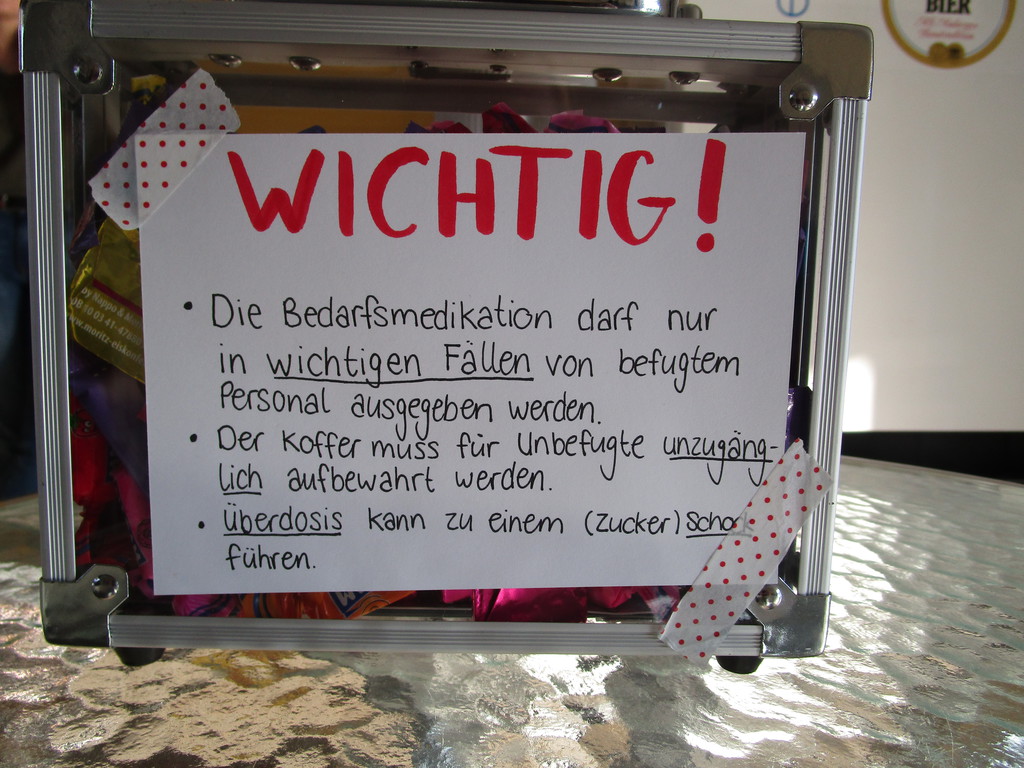 BIER
WICHTIG!
• Die Bedarfsmedikation darf nur
in wichtigen Fällen von befugtem
Personal ausgegeben werden.
• Der Koffer muss für Unbefugte unzugäng-
lich aufbewahrt werden.
• Überdosis kann zu einem (Zucker) Schock
führen.
by Nappo & M
www.moritz-eiskonf